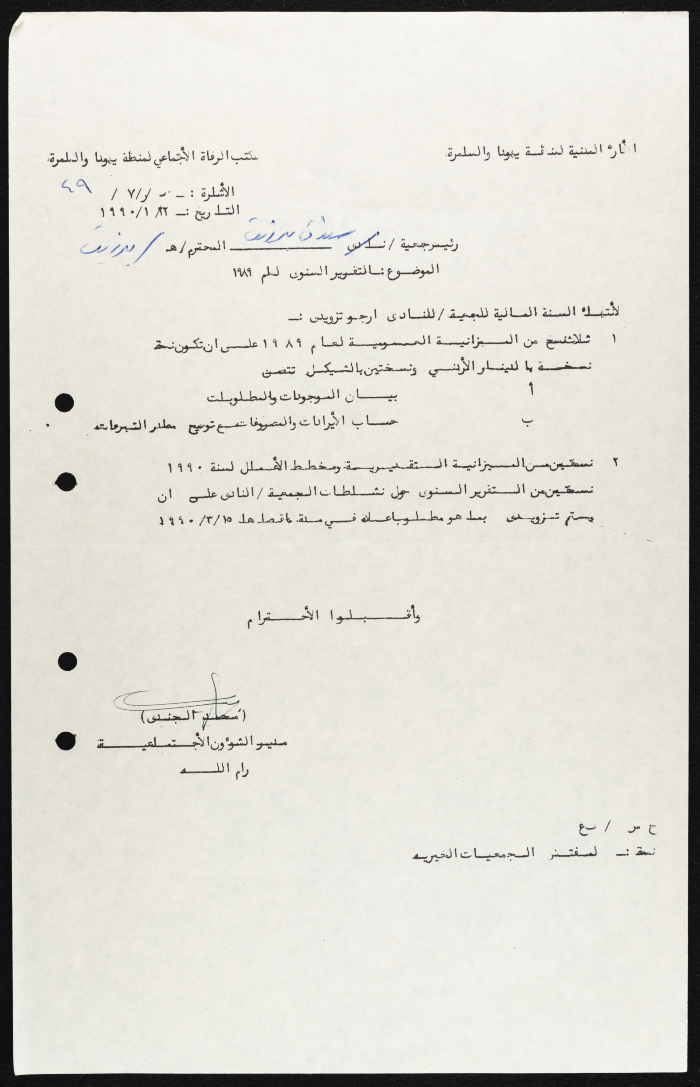 الادارة المدنية لمنطقة يهودا والسامرة
مكتب الرفاة الأجتماعي لمنطقة يهودا والسامرة
الأشارة :ــ /٧/ ٤٩
التاريخ :ــ ١٩٩٠/١/٢٢
رئيس جمعية / نادي المحترم/هـ
الموضوع :ــ التقرير السنوى لعام ١٩٨٩
لأنتهاء السنة المالية للجمعية / للنادى ارجو تزويدى :ــ
١ ثلاث نسخ من الميزانية العمومية لعام ١٩٨٩ على ان تكون نسخة
نسخة بالدينار الأردني ونسختين بالشيكل تتضمن
أ بيان الموجودات والمطلوبات
ب حساب الأيرادات والمصروفات مع توضيح مصادر التبرعات
٢ نسختين من الميزانية التقديرية ومخطط الأعمال لسنة ١٩٩٠
نسختين من التقرير السنوى حول نشاطات الجمعية / النادى على ان
يتم تزويدى بما هو مطلوب اعلاه في مدة اقصاها ١٩٩٠/٣/١٥
وأقبلوا الأحترام
الجندى)
مدير الشؤون الأجتماعية
رام الله
ح س / ع
نسخة :ــ لمفتش الجمعيات الخيريه